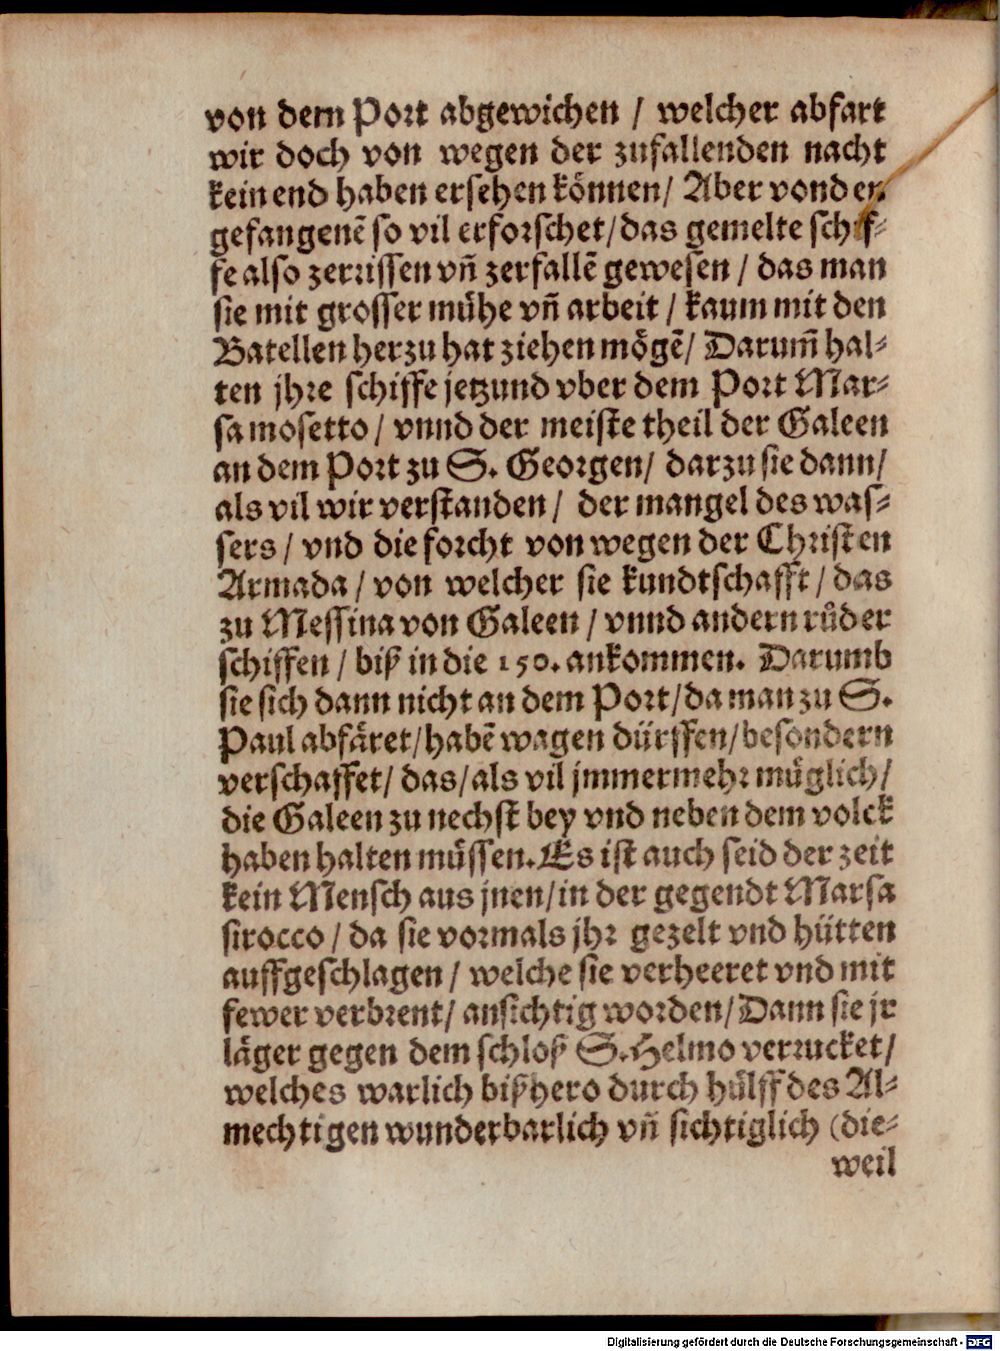 von dem Port abgewichen / welcher abfart
wir doch von wegen der zufallenden nacht
kein end haben ersehen können/ Aber von den
gefangenẽ so vil erforschet/das gemelte schif⸗
fe also zerrissen vñ zerfallẽ gewesen / das man
sie mit grosser mühe vñ arbeit / kaum mit den
Batellen herzu hat ziehen mögẽ/ Darum̃ hal⸗
ten jhre schiffe jetzund vber dem Port Mar⸗
sa mosetto / vnnd der meiste theil der Galeen
an dem Port zu S. Georgen/ darzu sie dann/
als vil wir verstanden / der mangel des was⸗
sers / vnd die forcht von wegen der Christen
Armada / von welcher sie kundtschafft / das
zu Messina von Galeen / vnnd andern růder
schiffen / biß in die 150. ankommen. Darumb
sie sich dann nicht an dem Port/da man zu S.
Paul abfäret/habẽ wagen dürffen/besondern
verschaffet/ das/als vil jmmermehr müglich/
die Galeen zu nechst bey vnd neben dem volck
haben halten müssen. Es ist auch seid der zeit
kein Mensch aus jnen/in der gegendt Marsa
sirocco / da sie vormals jhr gezelt vnd hütten
auffgeschlagen / welche sie verheeret vnd mit
fewer verbrent/ ansichtig worden/Dann sie jr
läger gegen dem schloß S. Helmo verrucket/
welches warlich bißhero durch hülff des Al⸗
mechtigen wunderbarlich vñ sichtiglich (die⸗
weil
Digitalisierung gefördert durch die Deutsche Forschungsgemeinschaft - DFG